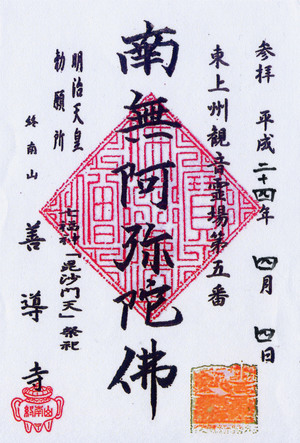 参拝 平成二十四年 四月 四日
東上州観音霊場第五番
南無阿弥陀佛
七福神「毘沙門天」祭祀
明治天皇
勅願所
終南山
善導寺
終南山